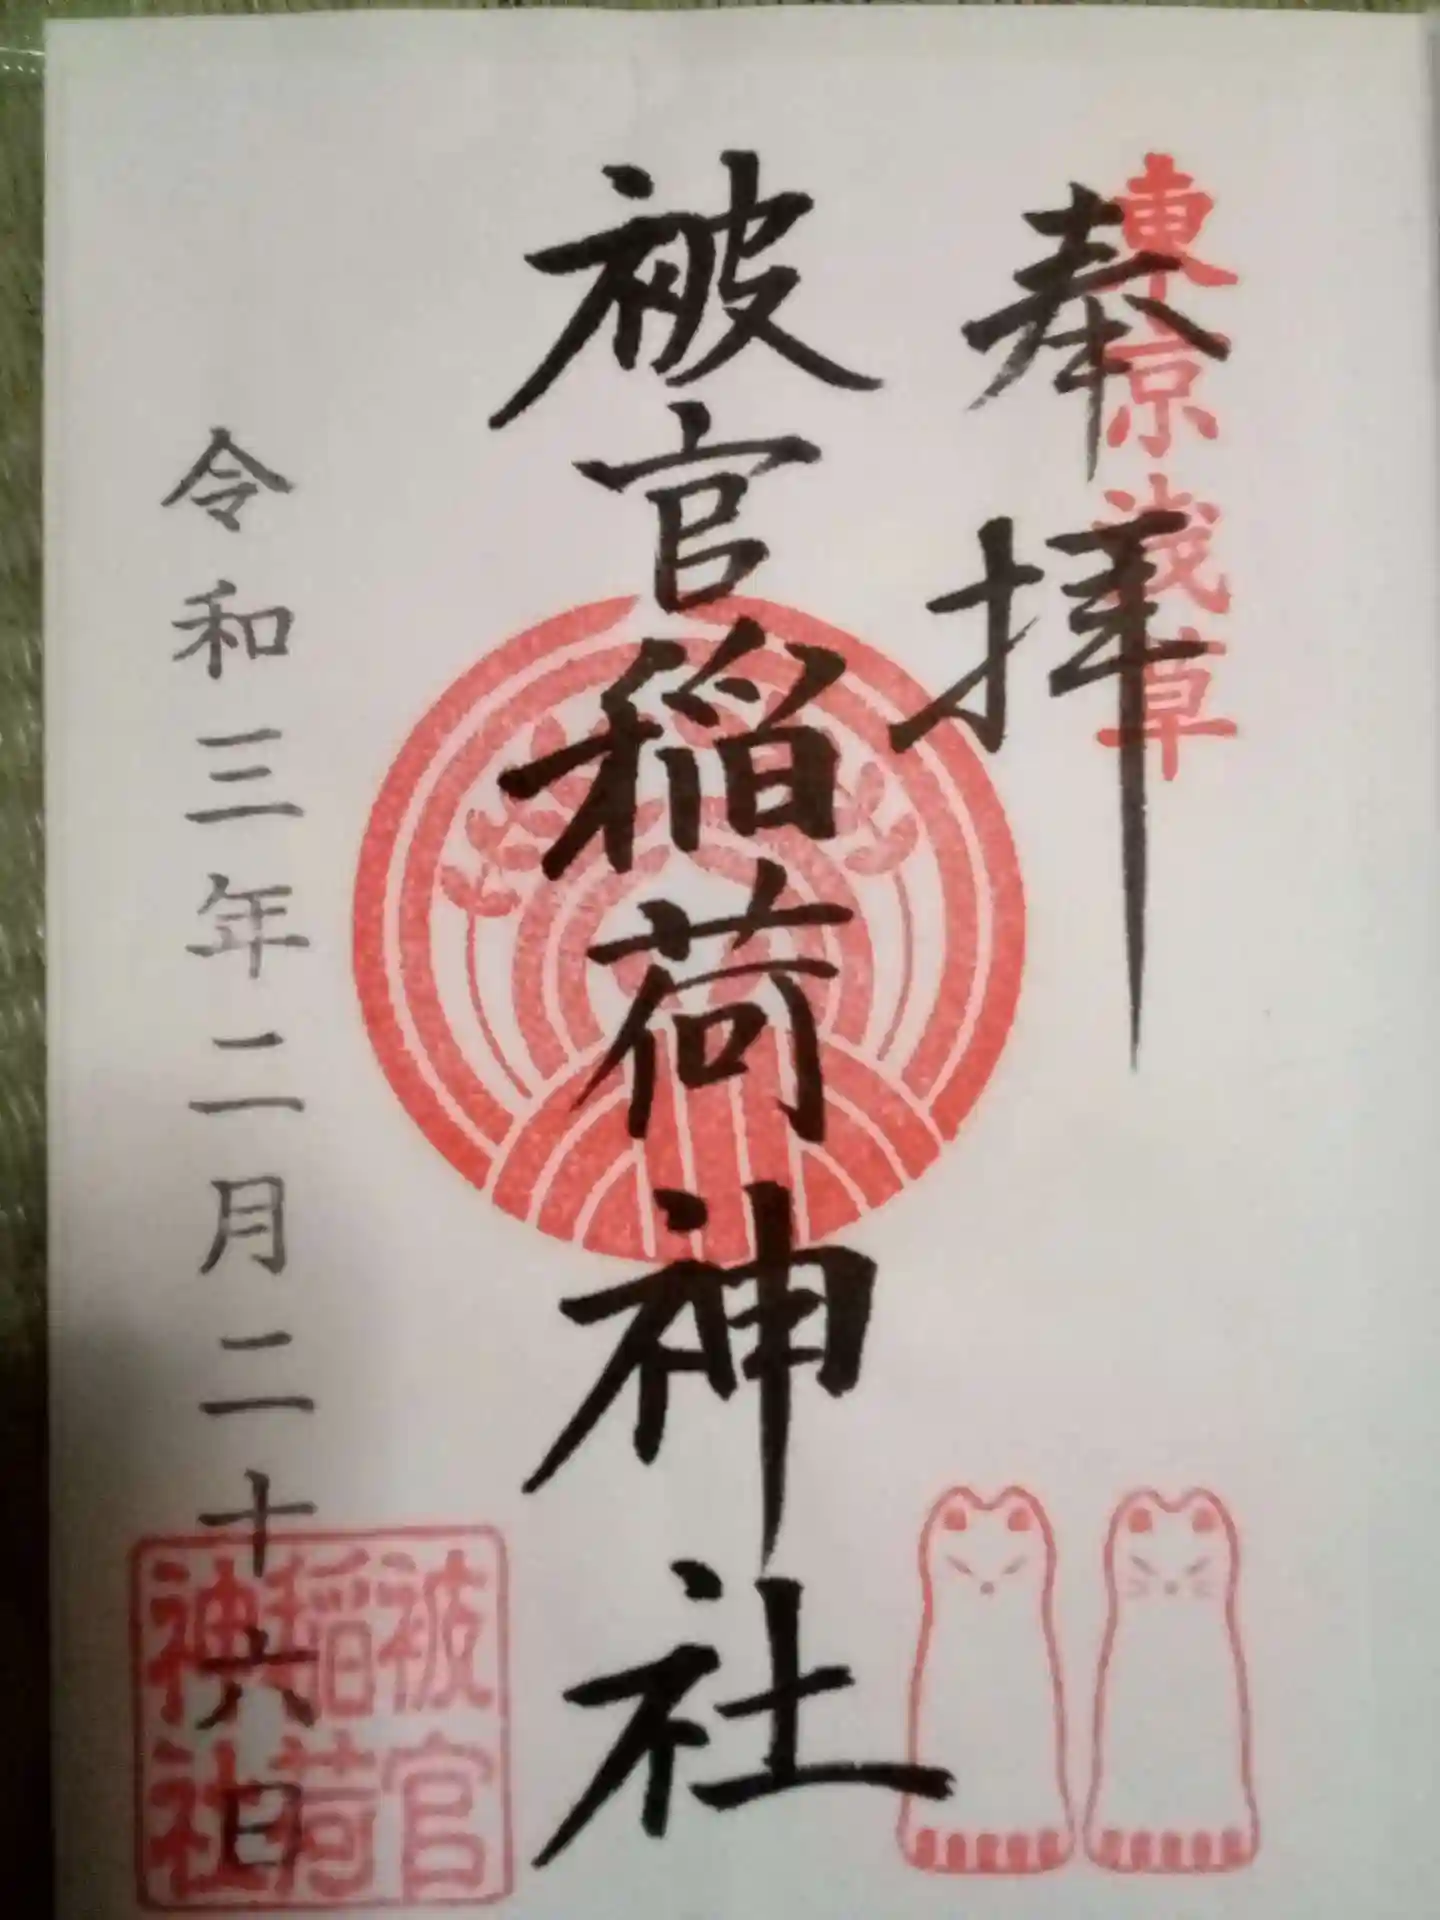 東京浅草
奉拝
被官稲荷神社
令和三年二月二十六日
被官
稲荷
神社